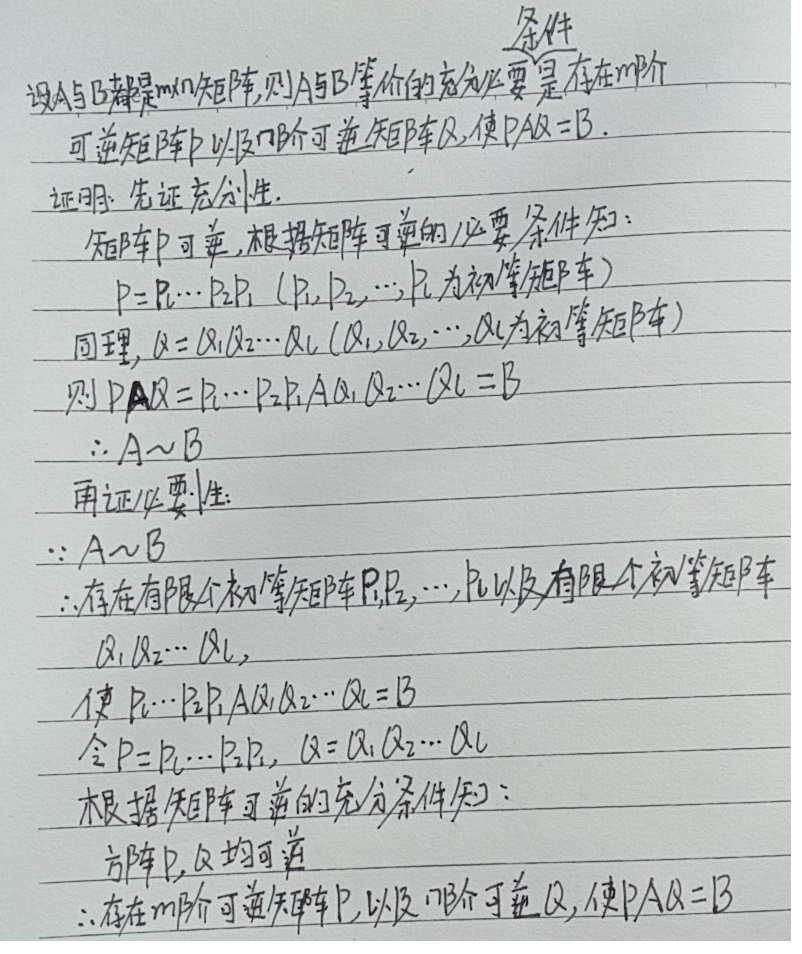 条件
设A与B都是m×n矩阵,则A与B等价的充分必要是存在m阶
可逆矩阵P以及n阶可逆矩阵Q,使PAQ=B.
证明:先证充分性.
矩阵P可逆,根据矩阵可逆的必要条件知:
P=Pl…P2P1 (P1,P2,…,Pl为初等矩阵)
同理,Q=Q1Q2…Ql(Q1,Q2,…,Ql为初等矩阵)
则PAQ=Pl…P2P1AQ1Q2…Ql=B
∴A~B
再证必要性:
∵A~B
∴存在有限个初等矩阵P1,P2,…,Pl以及有限个初等矩阵
Q1Q2…Ql,
使Pl…P2P1AQ1Q2…Ql=B
令P=Pl…P2P1, Q=Q1Q2…Ql
根据矩阵可逆的充分条件知:
方阵P,Q均可逆
∴存在m阶可逆矩阵P,以及n阶可逆Q,使PAQ=B